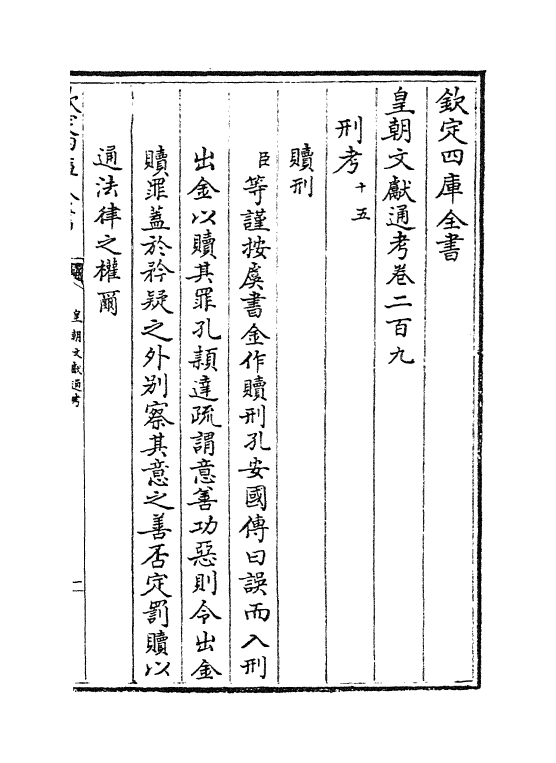 欽定四庫全書
皇朝文獻通考卷二百九
刑考十五
贖刑
臣等謹按虞書金作贖刑孔安國傳曰誤而入刑
出金以贖其罪孔穎達疏謂意善功惡則令出金
贖罪蓋於矜疑之外别察其意之善否定罰贖以
通法律之權爾
皇朝文獻通考